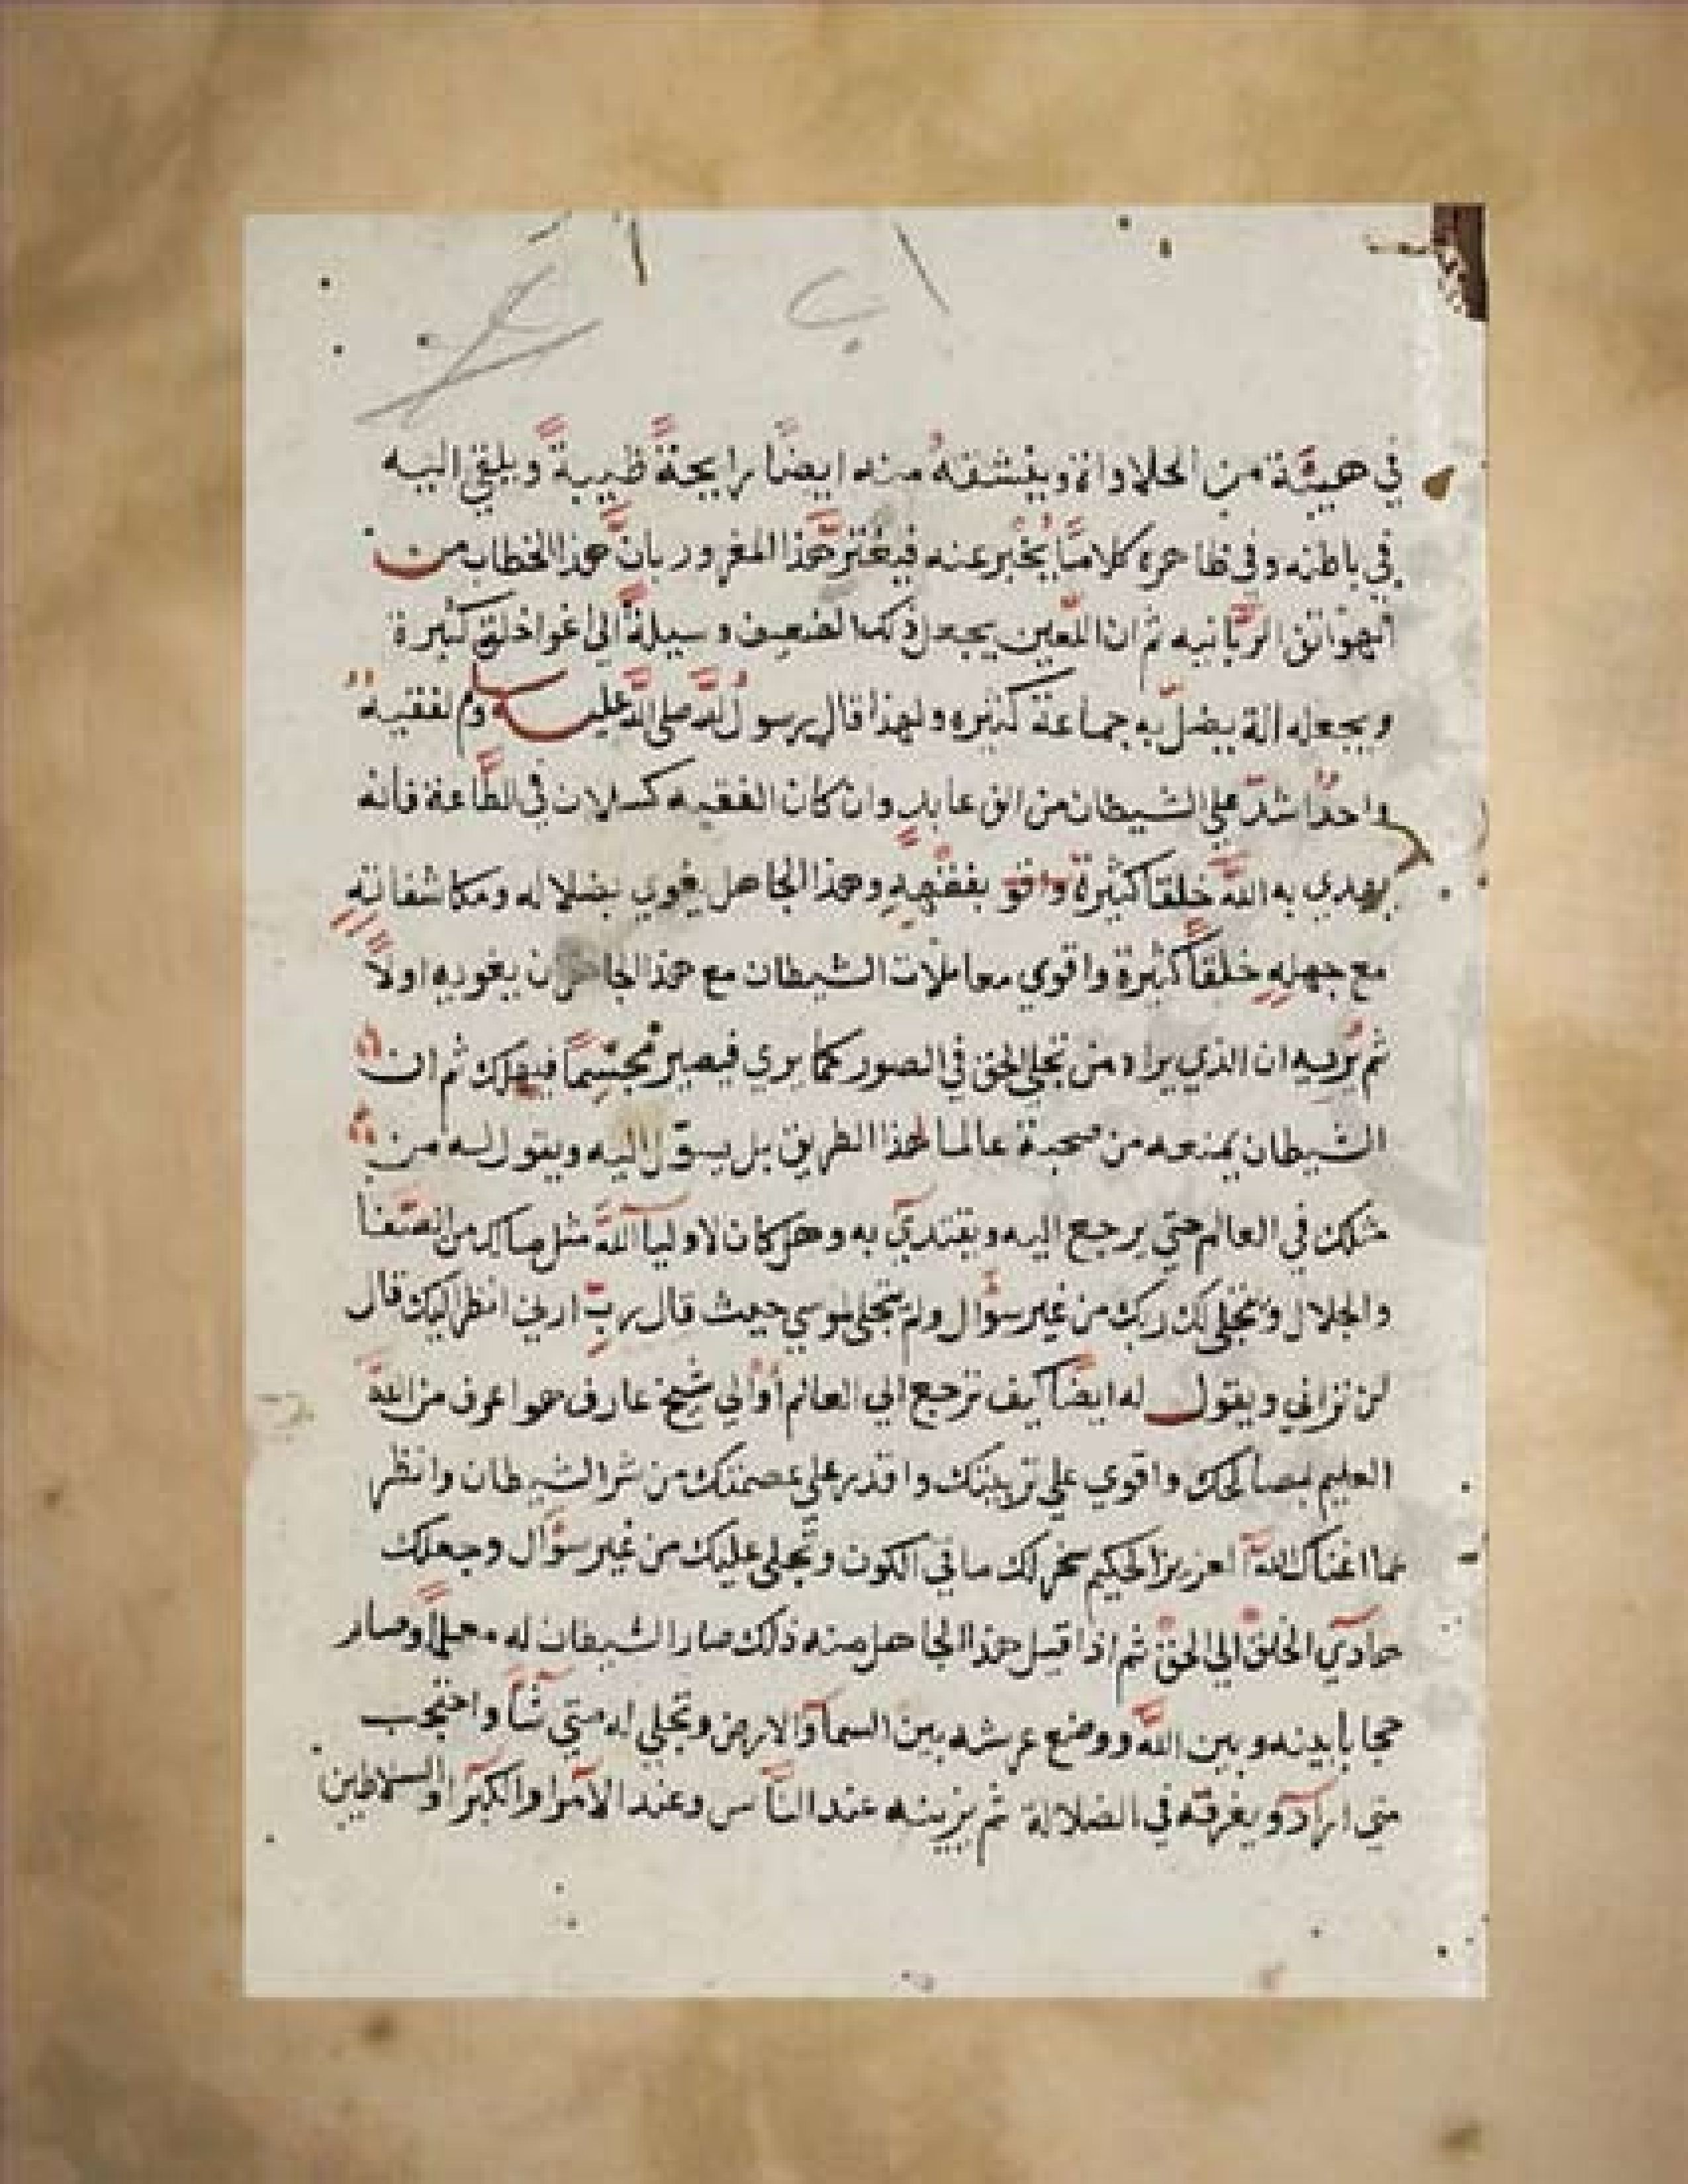 في هيئة من الحلاواة وينشقه منه ايضًا رايحةً طيبةً ويلقي اليه
في باطنه وفي ظاهره كلامًا يُخْبر عنه فيغترّ هذا المغرور بانّ هذا الخطاب من
الهواتق الربّانيه ثم ان اللّعين يجعل ذلك الضعيف وسيلةً الى اغوا خلق كثيرة
ويجعله الة يضلّ به جماعة كثيره ولهذا قال رسول الله صلى الله عليه وم لفقيه
واحدٌ اشدّ علي الشيطان من الف عابد وان كان الفقيه كسلان في الطّاعة فانه
يهدي به اللّه خلقا كثيرة بفقهِهِ وهذا الجاهل يغوي بضلاله ومكاشفاته
مع جهلهِ خلقًا كثيرة واقوي معاملات الشيطان مع هذا الجاهل ان يغويه اولًا
ثم يُريه ان الذي يراه من تجلي الحق في الصور كما يري فيصير مُجسّمًا فيهلك ثم ان
الشيطان يمنعه من صحبة عالما لهذا الطريق بل يسوّل اليه ويقول له من
مثلك في العالم حتي يرجع اليه ويقتديّ به وهل كان لاوليآ اللّه مثل مالك من
والجلال وتجلي لك ربك من غير سؤال ولم يتجلى لموسي حيث قال ربِّ ارني انظر اليك قال
لن تراني ويقول له ايضًا كيف ترجع الي العالم أوْ الي شيخ عارف هو اعرف من اللّه
العليم بمصالحك واقوي علي تربيتك واقدر علي عصمتك من شر الشيطان وانظر
لما اغناك اللّه العزيز الحكيم سخر لك ما في الكون وتجلى عليك من غير سؤال وجعلك
هاديّ الخلق الي الحق ثم اذا قبل هذا الجاهل منه ذلك صار الشيطان له محلًا وصار
حجابا بينه وبين اللّه ووضع عرشه بين السمآ والارض وتجلي له متي شآ واحتجب
متي اراد ويغرقه في الضلالة ثم يزينه عند النّاس وعند الامرآ والكبرآ والسلاطين